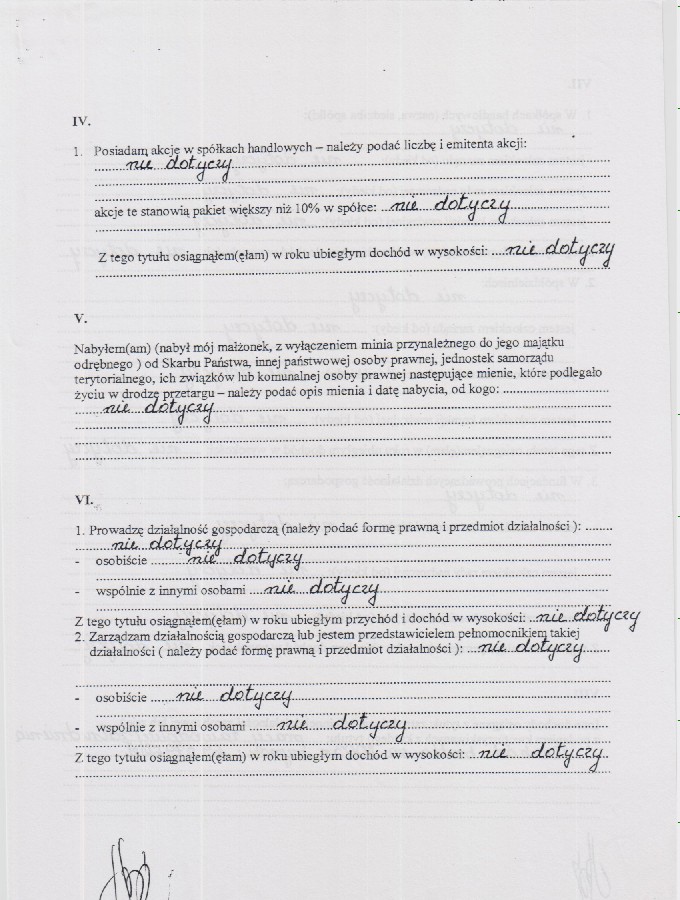 IV.
1. Posiadam akcje w spółkach handlowych – należy podać liczbę i emitenta akcji:
nie dotyczy
akcje te stanowią pakiet większy niż 10% w spółce: nie dotyczy
Z tego tytułu osiągnąłem(ęłam) w roku ubiegłym dochód w wysokości: nie dotyczy
V.
Nabyłem(am) (nabył mój małżonek, z wyłączeniem minia przynależnego do jego majątku
odrębnego ) od Skarbu Państwa, innej państwowej osoby prawnej, jednostek samorządu
terytorialnego, ich związków lub komunalnej osoby prawnej następujące mienie, które podlegało
życiu w drodze przetargu – należy podać opis mienia i datę nabycia, od kogo:
nie dotyczy
VI.
1. Prowadzę działalność gospodarczą (należy podać formę prawną i przedmiot działalności ):
nie dotyczy
- osobiście nie dotyczy
- wspólnie z innymi osobami nie dotyczy
Z tego tytułu osiągnąłem(ęłam) w roku ubiegłym przychód i dochód w wysokości: nie dotyczy
2. Zarządzam działalnością gospodarczą lub jestem przedstawicielem pełnomocnikiem takiej
działalności ( należy podać formę prawną i przedmiot działalności ): nie dotyczy
- osobiście nie dotyczy
- wspólnie z innymi osobami nie dotyczy
Z tego tytułu osiągnąłem(ęłam) w roku ubiegłym dochód w wysokości: nie dotyczy